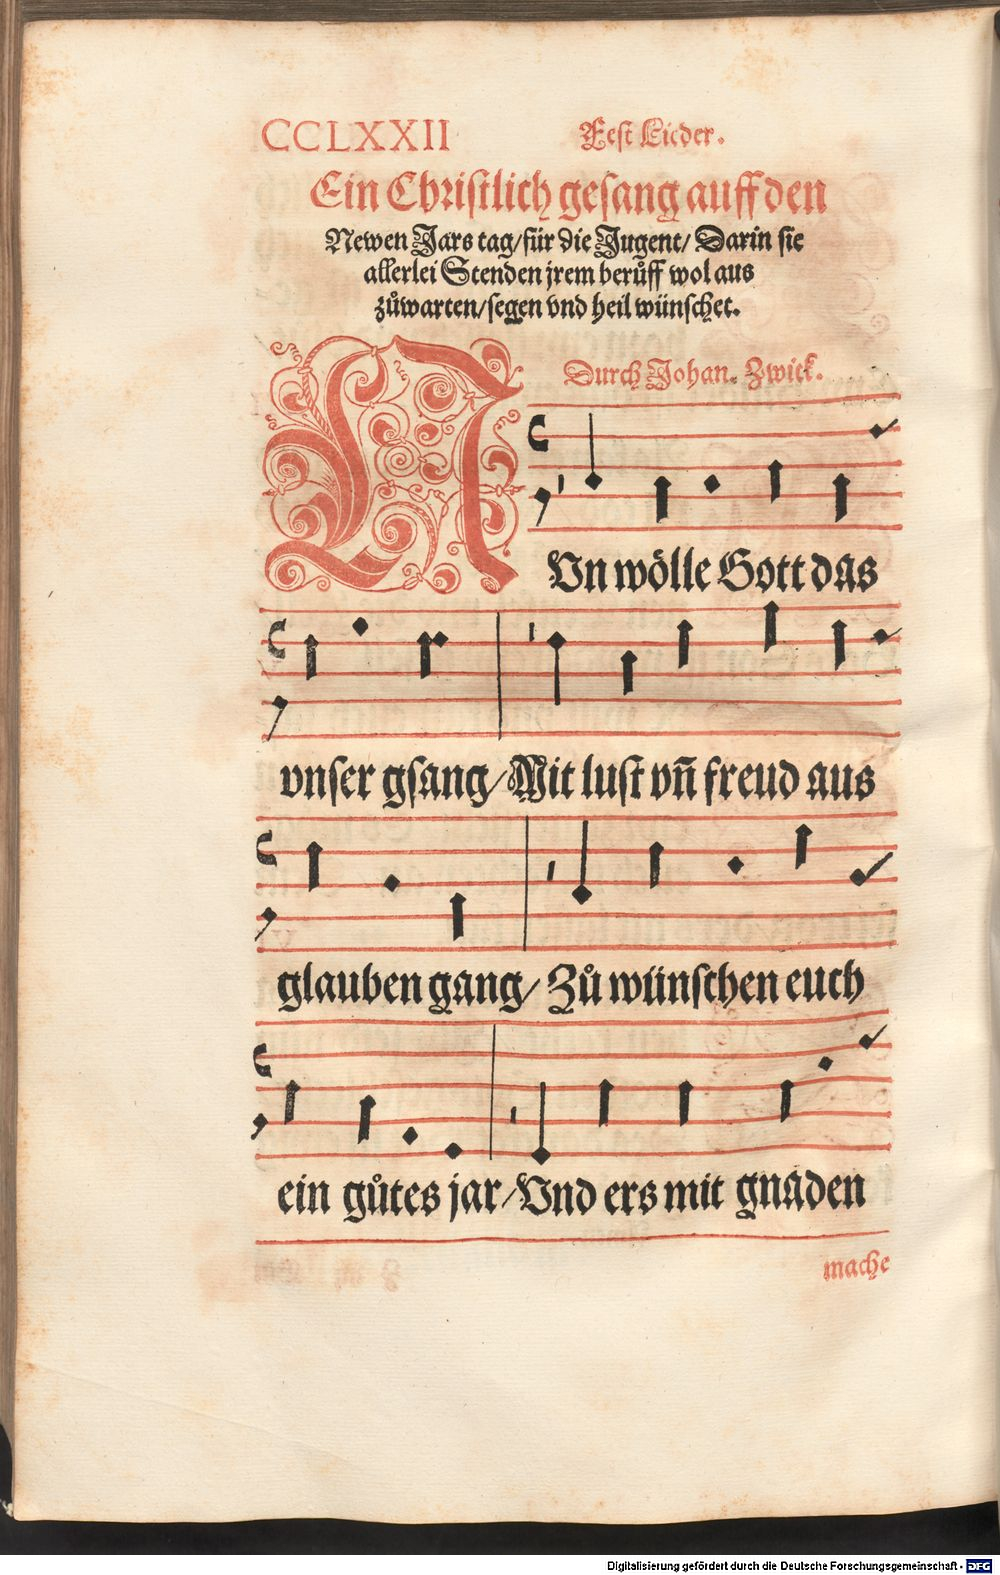 CCLXXII Fest Lieder.
Ein Christlich gesang auff den
Newen Jars tag/für die Jugent/ Darin sie
allerlei Stenden jrem berůff wol aus
zůwarten/segen vnd heil wünschet.
Durch Johan. Zwick.
NVn wölle Gott das
vnser gsang/Mit lust vñ freud aus
glauben gang/ Zů wünschen euch
ein gůtes jar/Vnd ers mit gnaden
mache
Digitalisierung gefördert durch die Deutsche Forschungsgemeinschaft - DFG